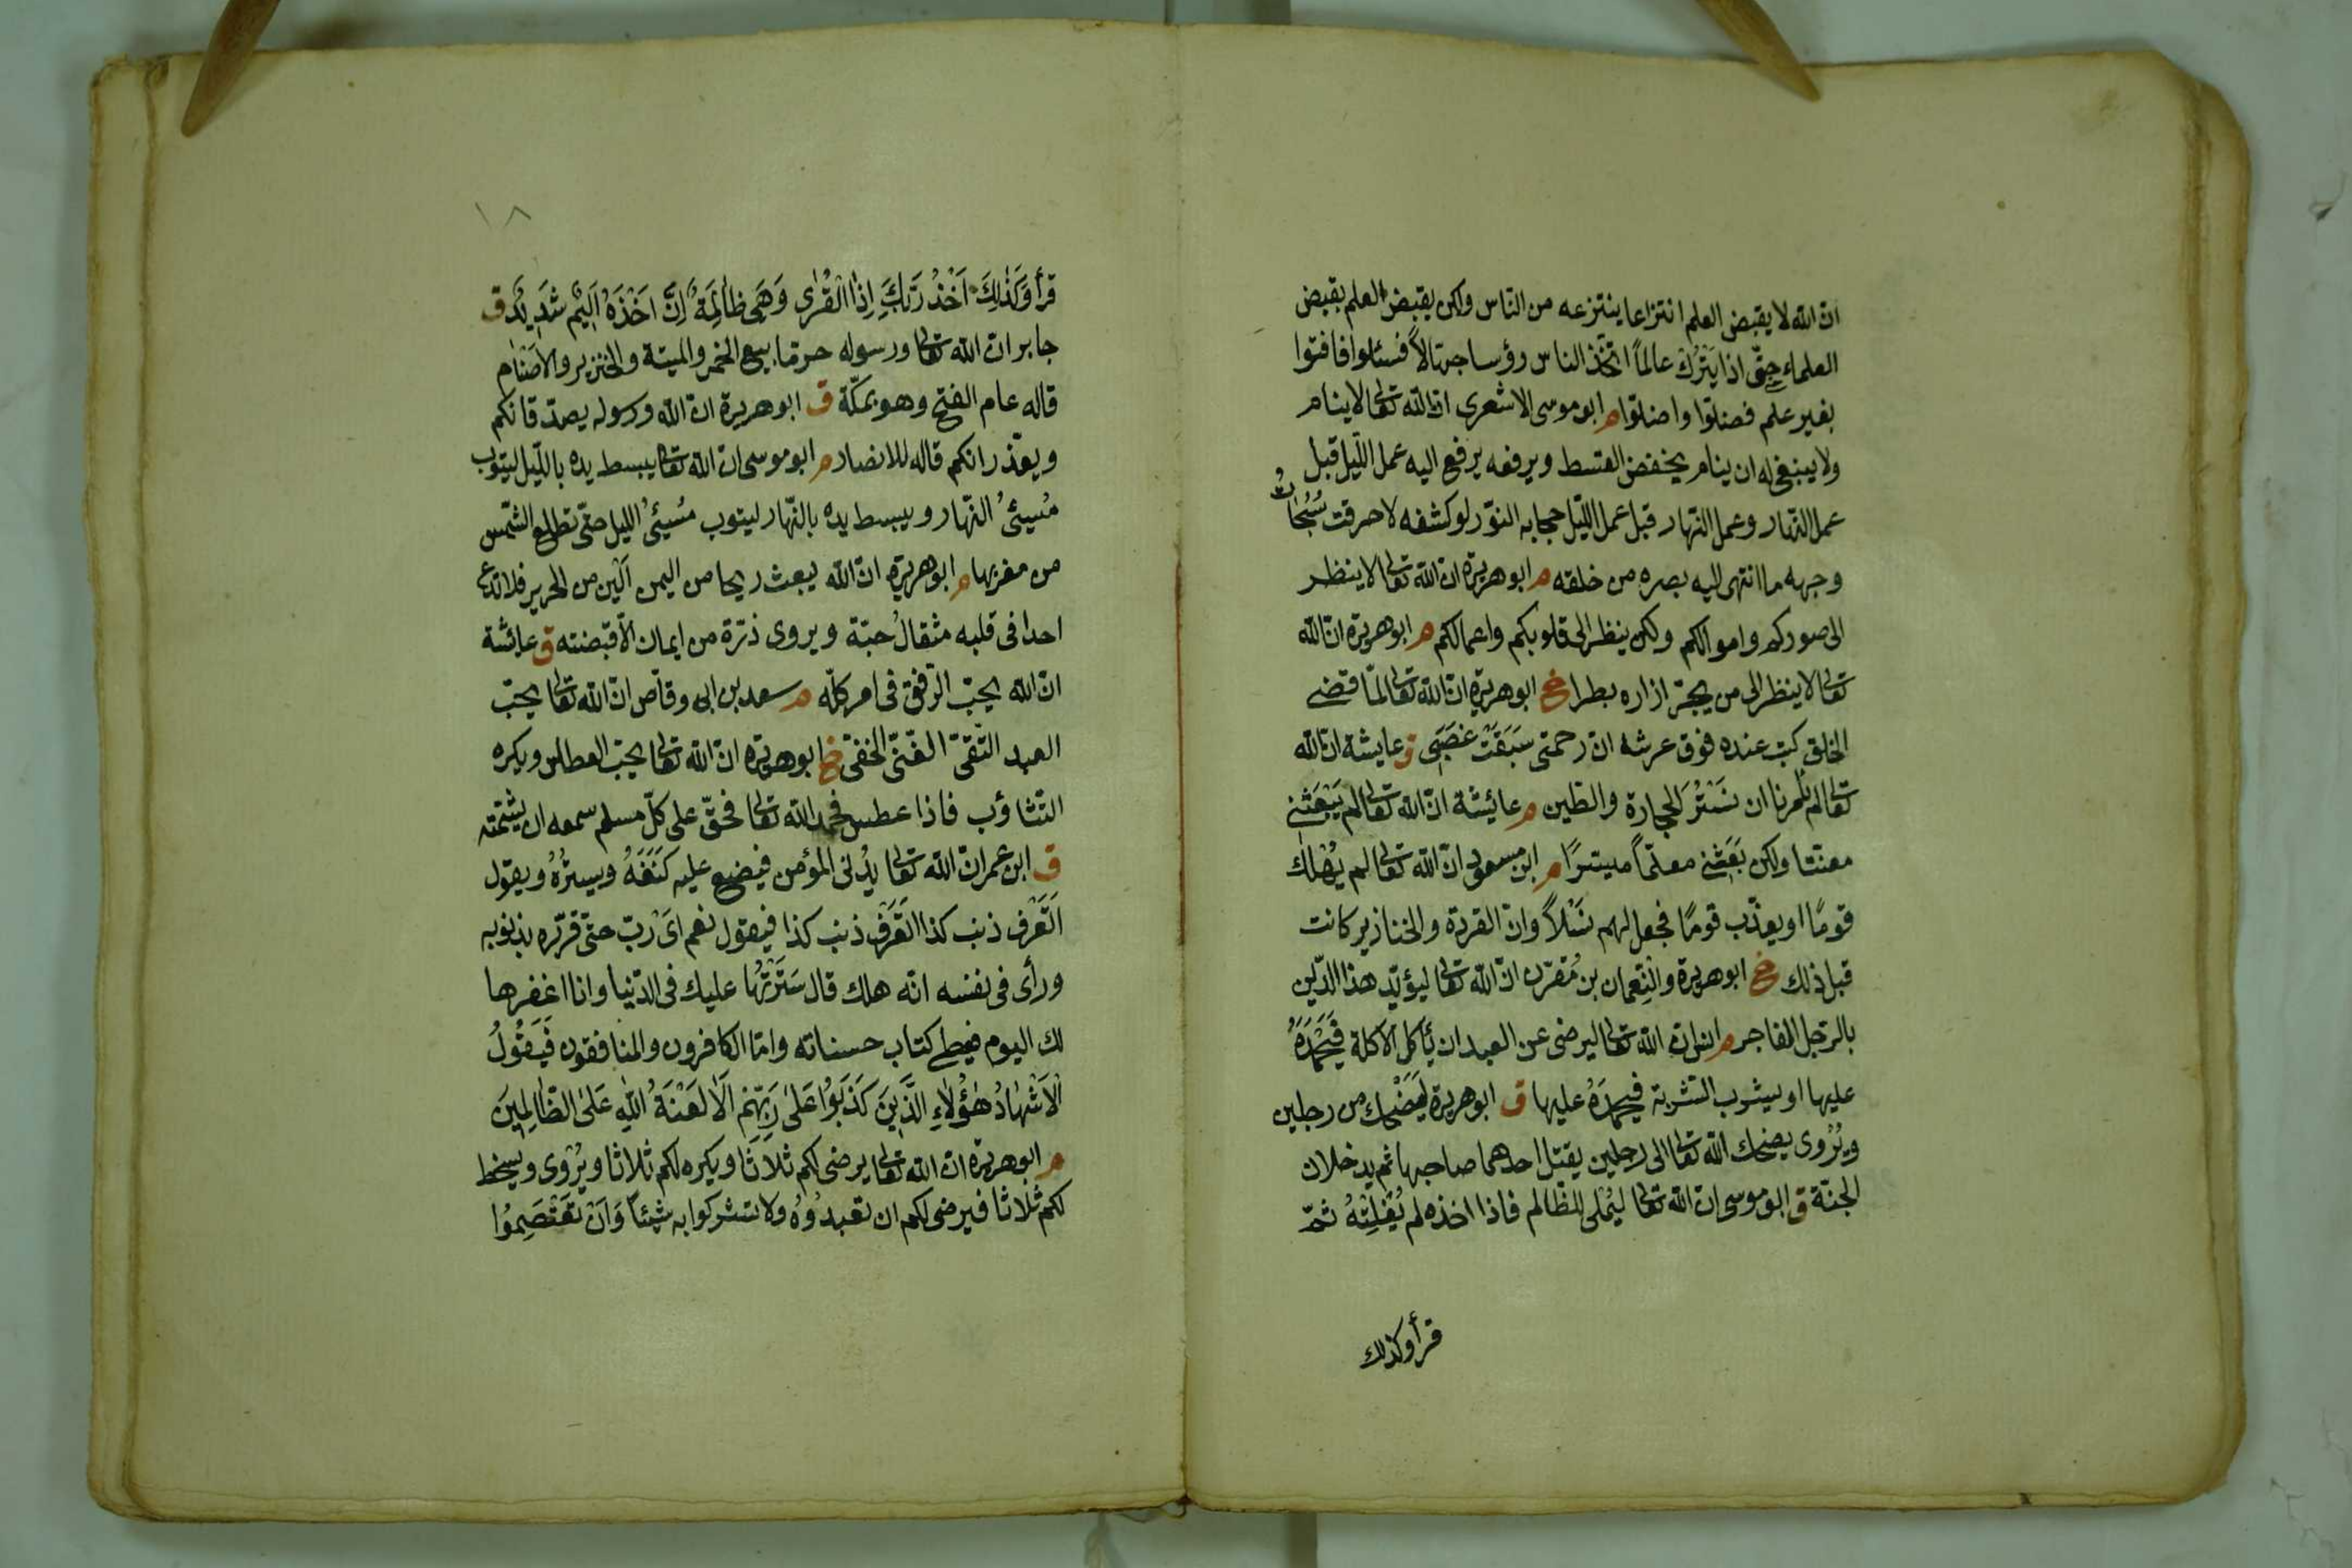 ان الله لا يقبض العلم انتزاعا ينتزعه من الناس ولكن يقبض العلم بقبض
العلماء حتّى اذا يَتْرُكْ عالماً اتخذ الناس رؤسا جهّالاً فسئلوا فافتوا
بغير علم فضلّوا واضلّوا م ابو موسى الاشعرى ان الله تعالى لا ينام
ولا ينبغى له ان ينام يخفض القسط ويرفعه يرفع اليه عمل اللّيل قبل
عمل النّهار وعمل النّهار قبل عمل اللّيل حجابه النّور لو كشفه لاحرقت سُبُحَاتُ
وجهه ما انتهى اليه بصره من خلقه م ابو هريرة ان الله تعالى لا ينظر
الى صوركم واموالكم ولكن ينظر الى قلوبكم واعمالكم م ابو هريرة ان الله
تعالى لا ينظر الى من يجرّ ازاره بطرا خ ابو هريرة انّ الله تعالى لمّا قضى
الخلق كتب عنده فوق عرشه ان رحمتى سَبَقَتْ غضَبِى ق عايشة ان الله
تعالى لم يأمرنا ان نَسْتُرَ الحجارة والطين م عائشة انّ الله تعالى لم يَبْعَثْنِى
معنّتا ولكن بَعَثَنِى معلّماً ميسّرًا م ابن مسعود انّ الله تعالى لم يُهْلك
قومًا او يعذّب قومًا فجعل لهم نَسْلاً وانّ القردة والخنازير كانت
قبل ذلك خ ابو هريرة والنّعمان بن مُقرّن انّ الله تعالى ليؤيّد هذا الدّين
بالرّجل الفاجر م انس ان الله تعالى ليرضى عن العبد ان يأكل الاكلة فَيَحْمَدَهُ
عليها او يشرب الشّربة فيحمدَهُ عليها ق ابو هريرة ليَضْحك من رجلين
ويُرْوى يضحك الله تعالى الى رجلين يقتل احدهما صاحبها ثم يدخلان
الجنّة ق ابو موسى ان الله تعالى ليُمْلى للظّالم فاذا اخذه لم يُفْلِتْهُ ثمّ
قرأ وكذلك
١٨
قرأ وَكَذٰلِكَ اَخْذُ رَبِّكَ اِذَا الْقُرٰى وَهِىَ ظَالِمَةٌ اِنَّ اَخْذَهُ اَلِيمٌ شَدِيدٌ ق
جابر ان الله تعالى ورسوله حرّما بيع الخمر والميتة والخنزير والاَصْنَام
قاله عام الفتح وهو بمكّة ق ابو هريرة انّ الله ورسوله يصدّقانكم
ويعذرانكم قاله للانصار م ابو موسى ان الله تعالى يبسط يده باللّيل ليتوب
مُسِيئُ النّهار ويبسط يده بالنّهار ليتوب مُسِيئُ الليل حتّى تطلع الشّمس
من مغربها م ابو هريرة انّ الله يبعث ريحا من اليمن اَلْيَن من الحرير فلا تدع
احدا فى قلبه مثقالُ حبّة ويروى ذرّة من ايمان الاّ قبضته ق عائشة
انّ الله يحبّ الرّفق فى امر كلّه م سعد بن ابى وقّاص انّ الله تعالى يحبّ
العبد التّقىّ الغنىّ الخفىّ خ ابو هريرة انّ الله تعالى يحبّ العطاس ويكره
التّثاؤب فاذا عطس فحمد الله تعالى فحقّ على كلّ مسلم سمعه ان يشمّته
ق ابن عمر انّ الله تعالى يُدْنى المؤمن فيضع عليه كَنَفَهُ ويسترُهُ ويقول
اَتَعْرف ذنب كذا اَتَعْرف ذنب كذا فيقول نعم اَىْ ربّ حتّى قرّره بذنوبه
ورأى فى نفسه انّه هلك قال سَتَرْتُهَا عليك فى الدّنيا وانا اغفرها
لك اليوم فيعطى كتاب حسناته وامّا الكافرون والمنافقون فَيَقُولُ
الْاَشْهَادُ هٰؤُلَاءِ الَّذِينَ كَذَبُوا عَلٰى رَبِّهِمْ اَلَا لَعْنَةُ اللهِ عَلَى الظّالِمِينَ
م ابو هريرة ان الله تعالى يرضى لكم ثلاثا ويكره لكم ثلاثا ويُرْوى ويسخط
لكم ثلاثا فيرضى لكم ان تعبدُوهُ ولا تشركوا به شيئاً وَاَنْ تَعْتَصِمُوا